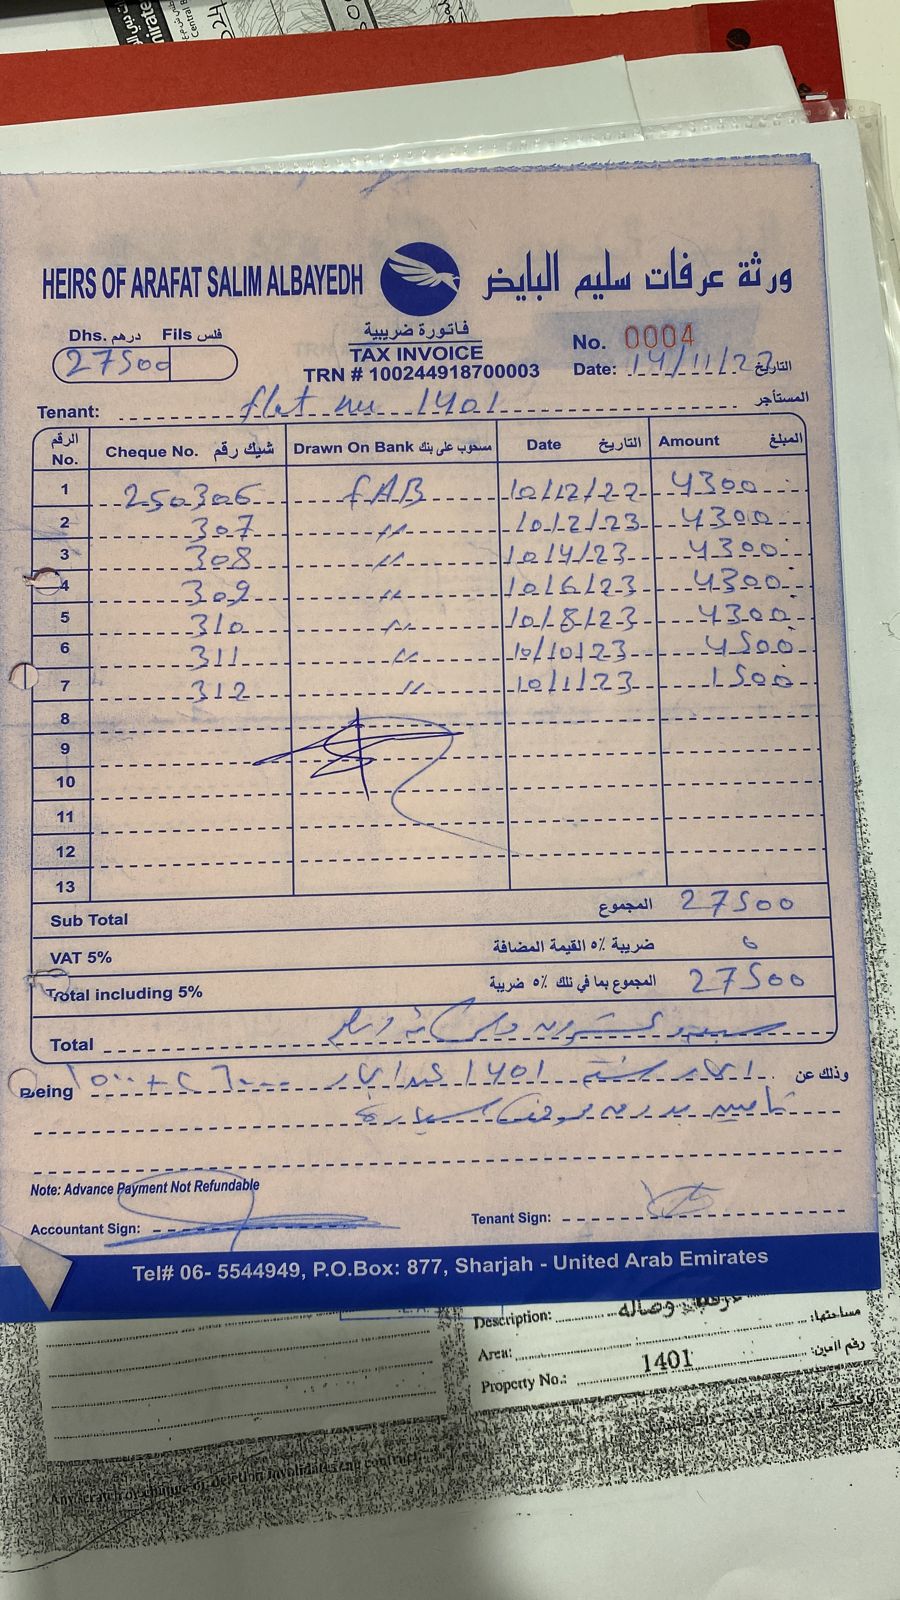 HEIRS OF ARAFAT SALIM ALBAYEDH ورثة عرفات سليم البايض
Dhs. درهم Fils فلس
27500
فاتورة ضريبية
TAX INVOICE
TRN # 100244918700003
No. 0004
Date: 14/11/22 التاريخ
Tenant: flat no 1401 المستأجر
الرقم No. Cheque No. شيك رقم Drawn On Bank مسحوب على بنك Date التاريخ Amount المبلغ
1 250306 FAB 10/12/22 4300
2 307 " 10/2/23 4300
3 308 " 10/4/23 4300
4 309 " 10/6/23 4300
5 310 " 10/8/23 4300
6 311 " 10/10/23 4500
7 312 " 10/1/23 1500
8
9
10
11
12
13
Sub Total المجموع 27500
VAT 5% ضريبة ٥٪ القيمة المضافة 0
Total including 5% المجموع بما في ذلك ٥٪ ضريبة 27500
Total
Being ايجار 1401 ٢٦٠٠٠ + ١٥٠٠ وذلك عن
Note: Advance Payment Not Refundable
Accountant Sign: Tenant Sign:
Tel# 06- 5544949, P.O.Box: 877, Sharjah - United Arab Emirates
Description: وصاله مساحتها:
Area:
Property No.: 1401
Any scratch or change or deletion invalidates